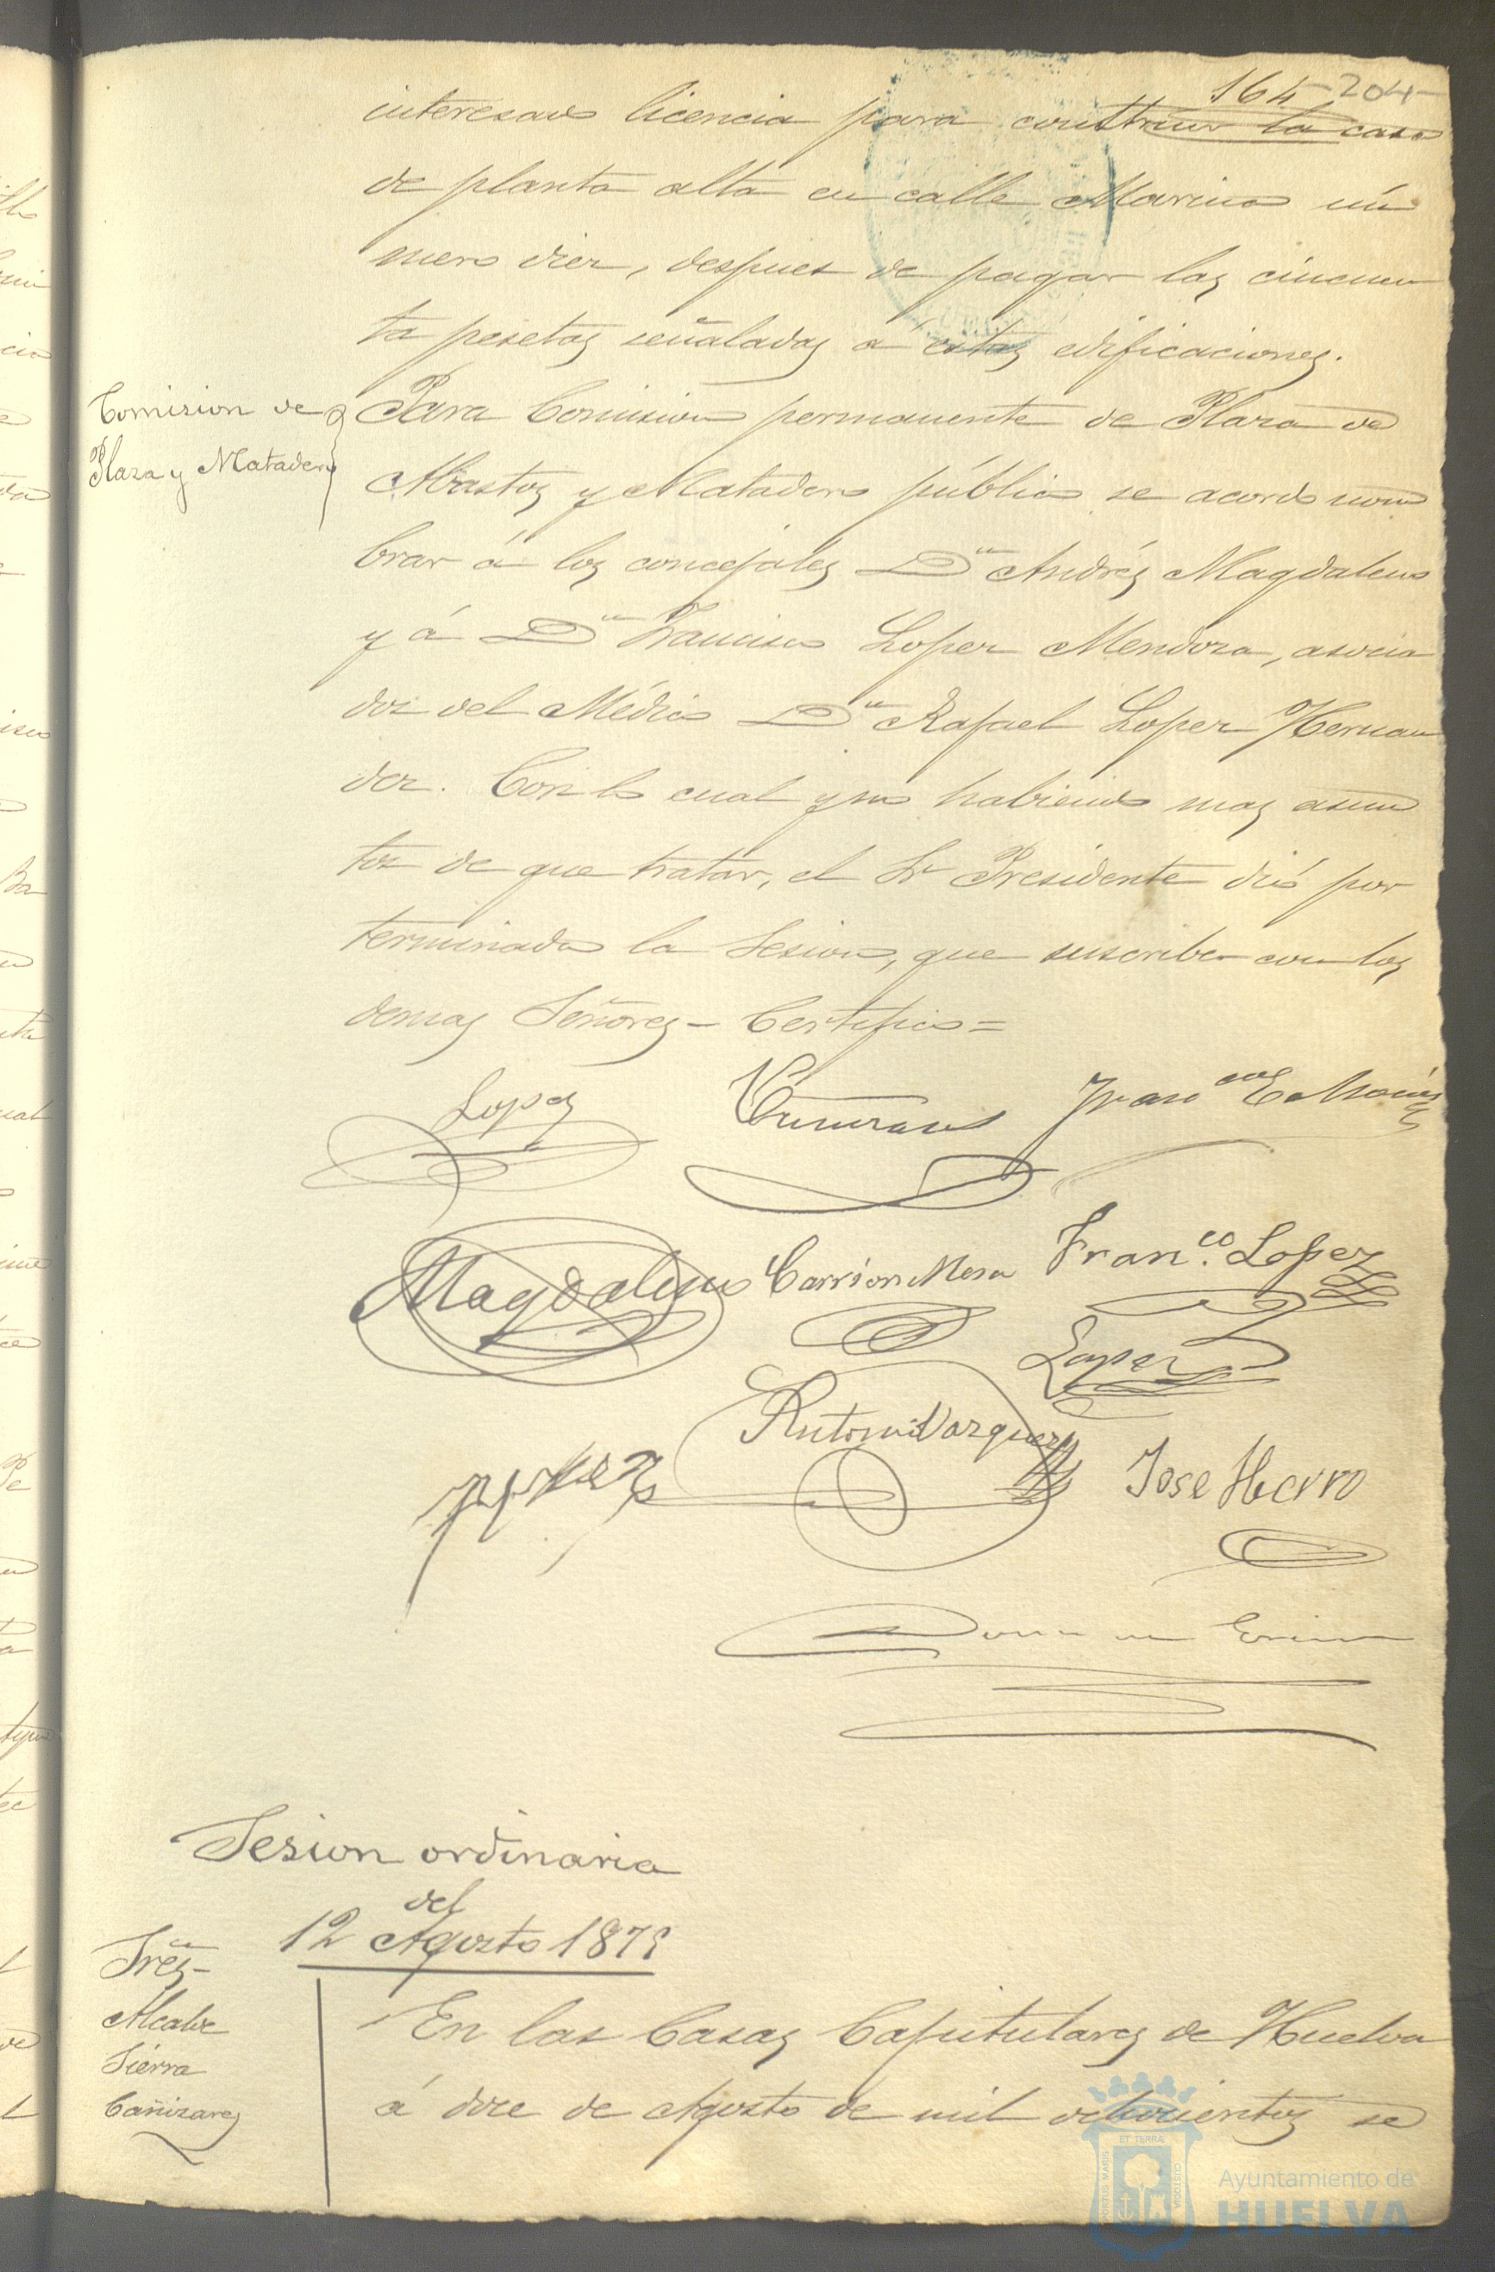 164 -204-
interesado licencia para construir la casa
de planta alta en calle Marina nú
mero diez, despues de pagar las cincuen
ta pesetas señaladas á estas edificaciones.
Comision de
Plaza y Matadero
Para Comision permanente de Plaza de
Abastos y Matadero público se acordó nom
brar á los concejales Dn Andrés Magdaleno
y á Dn Francisco Lopez Mendoza, asocia
dos del Médico Dn Rafael Lopez Hernan
dez. Con lo cual y no habiendo mas asun
tos de que tratar, el Sr Presidente dió por
terminada la Sesion, que suscribe con los
demas Señores - Certifico =
Lopez
Franco
Magdaleno Carrion Mesa Franco. Lopez
Lopez
Antonio Vazquez
Jose Hierro
Sesion ordinaria
del
12 Agosto 1879
Sres-
Alcalde
Sierra
Cañizares
En las Casas Capitulares de Huelva
á doce de Agosto de mil ochocientos se
PORTUS MARIS ET TERRÆ CUSTODIA
Ayuntamiento de
HUELVA